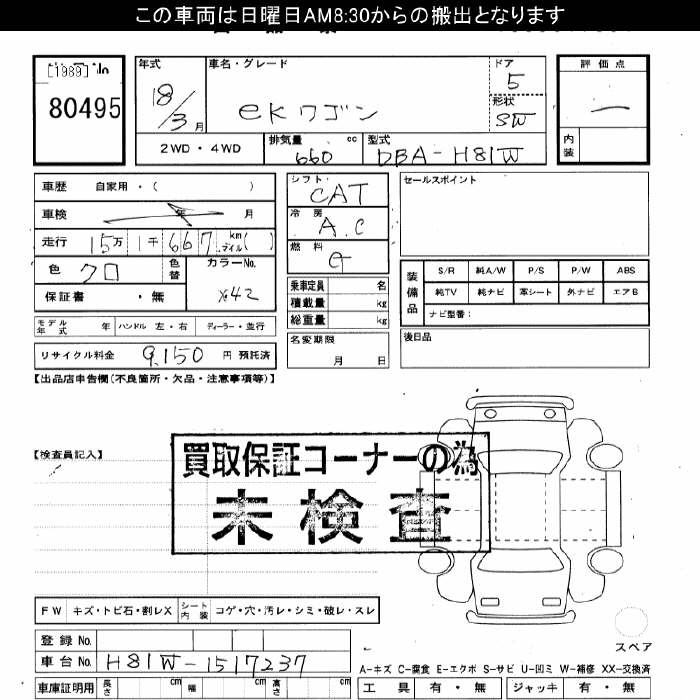 この車両は日曜日AM8:30からの搬出となります
[1989] No
80495
年式
18/3月
車名・グレード
eKワゴン
ドア
5
形状
SW
評価点
内装
2WD・4WD
排気量 cc
660
型式
DBA-H81W
車歴 自家用・( )
車検 年 月
走行 15万1千667 km マイル( )
色 クロ
色替
カラーNo.
X42
保証書 ・無
モデル年式 年 ハンドル 左・右 ディーラー・並行
リサイクル料金 9,150 円 預託済
シフト
CAT
冷房
A.C
燃料
G
乗車定員 名
積載量 kg
総重量 kg
名変期限
月 日
セールスポイント
装備品
S/R 純A/W P/S P/W ABS
純TV 純ナビ 革シート 外ナビ エアB
ナビ型番:
後日品
【出品店申告欄(不良箇所・欠品・注意事項等)】
【検査員記入】
買取保証コーナーの為
未検査
FW キズ・トビ石・割レX
シート内装 コゲ・穴・汚レ・シミ・破レ・スレ
登録No.
車台No. H81W-1517237
車庫証明用 長さ cm 幅 cm 高さ cm
スペア
A-キズ C-腐食 E-エクボ S-サビ U-凹ミ W-補修 XX-交換済
工具 有・無 ジャッキ 有・無